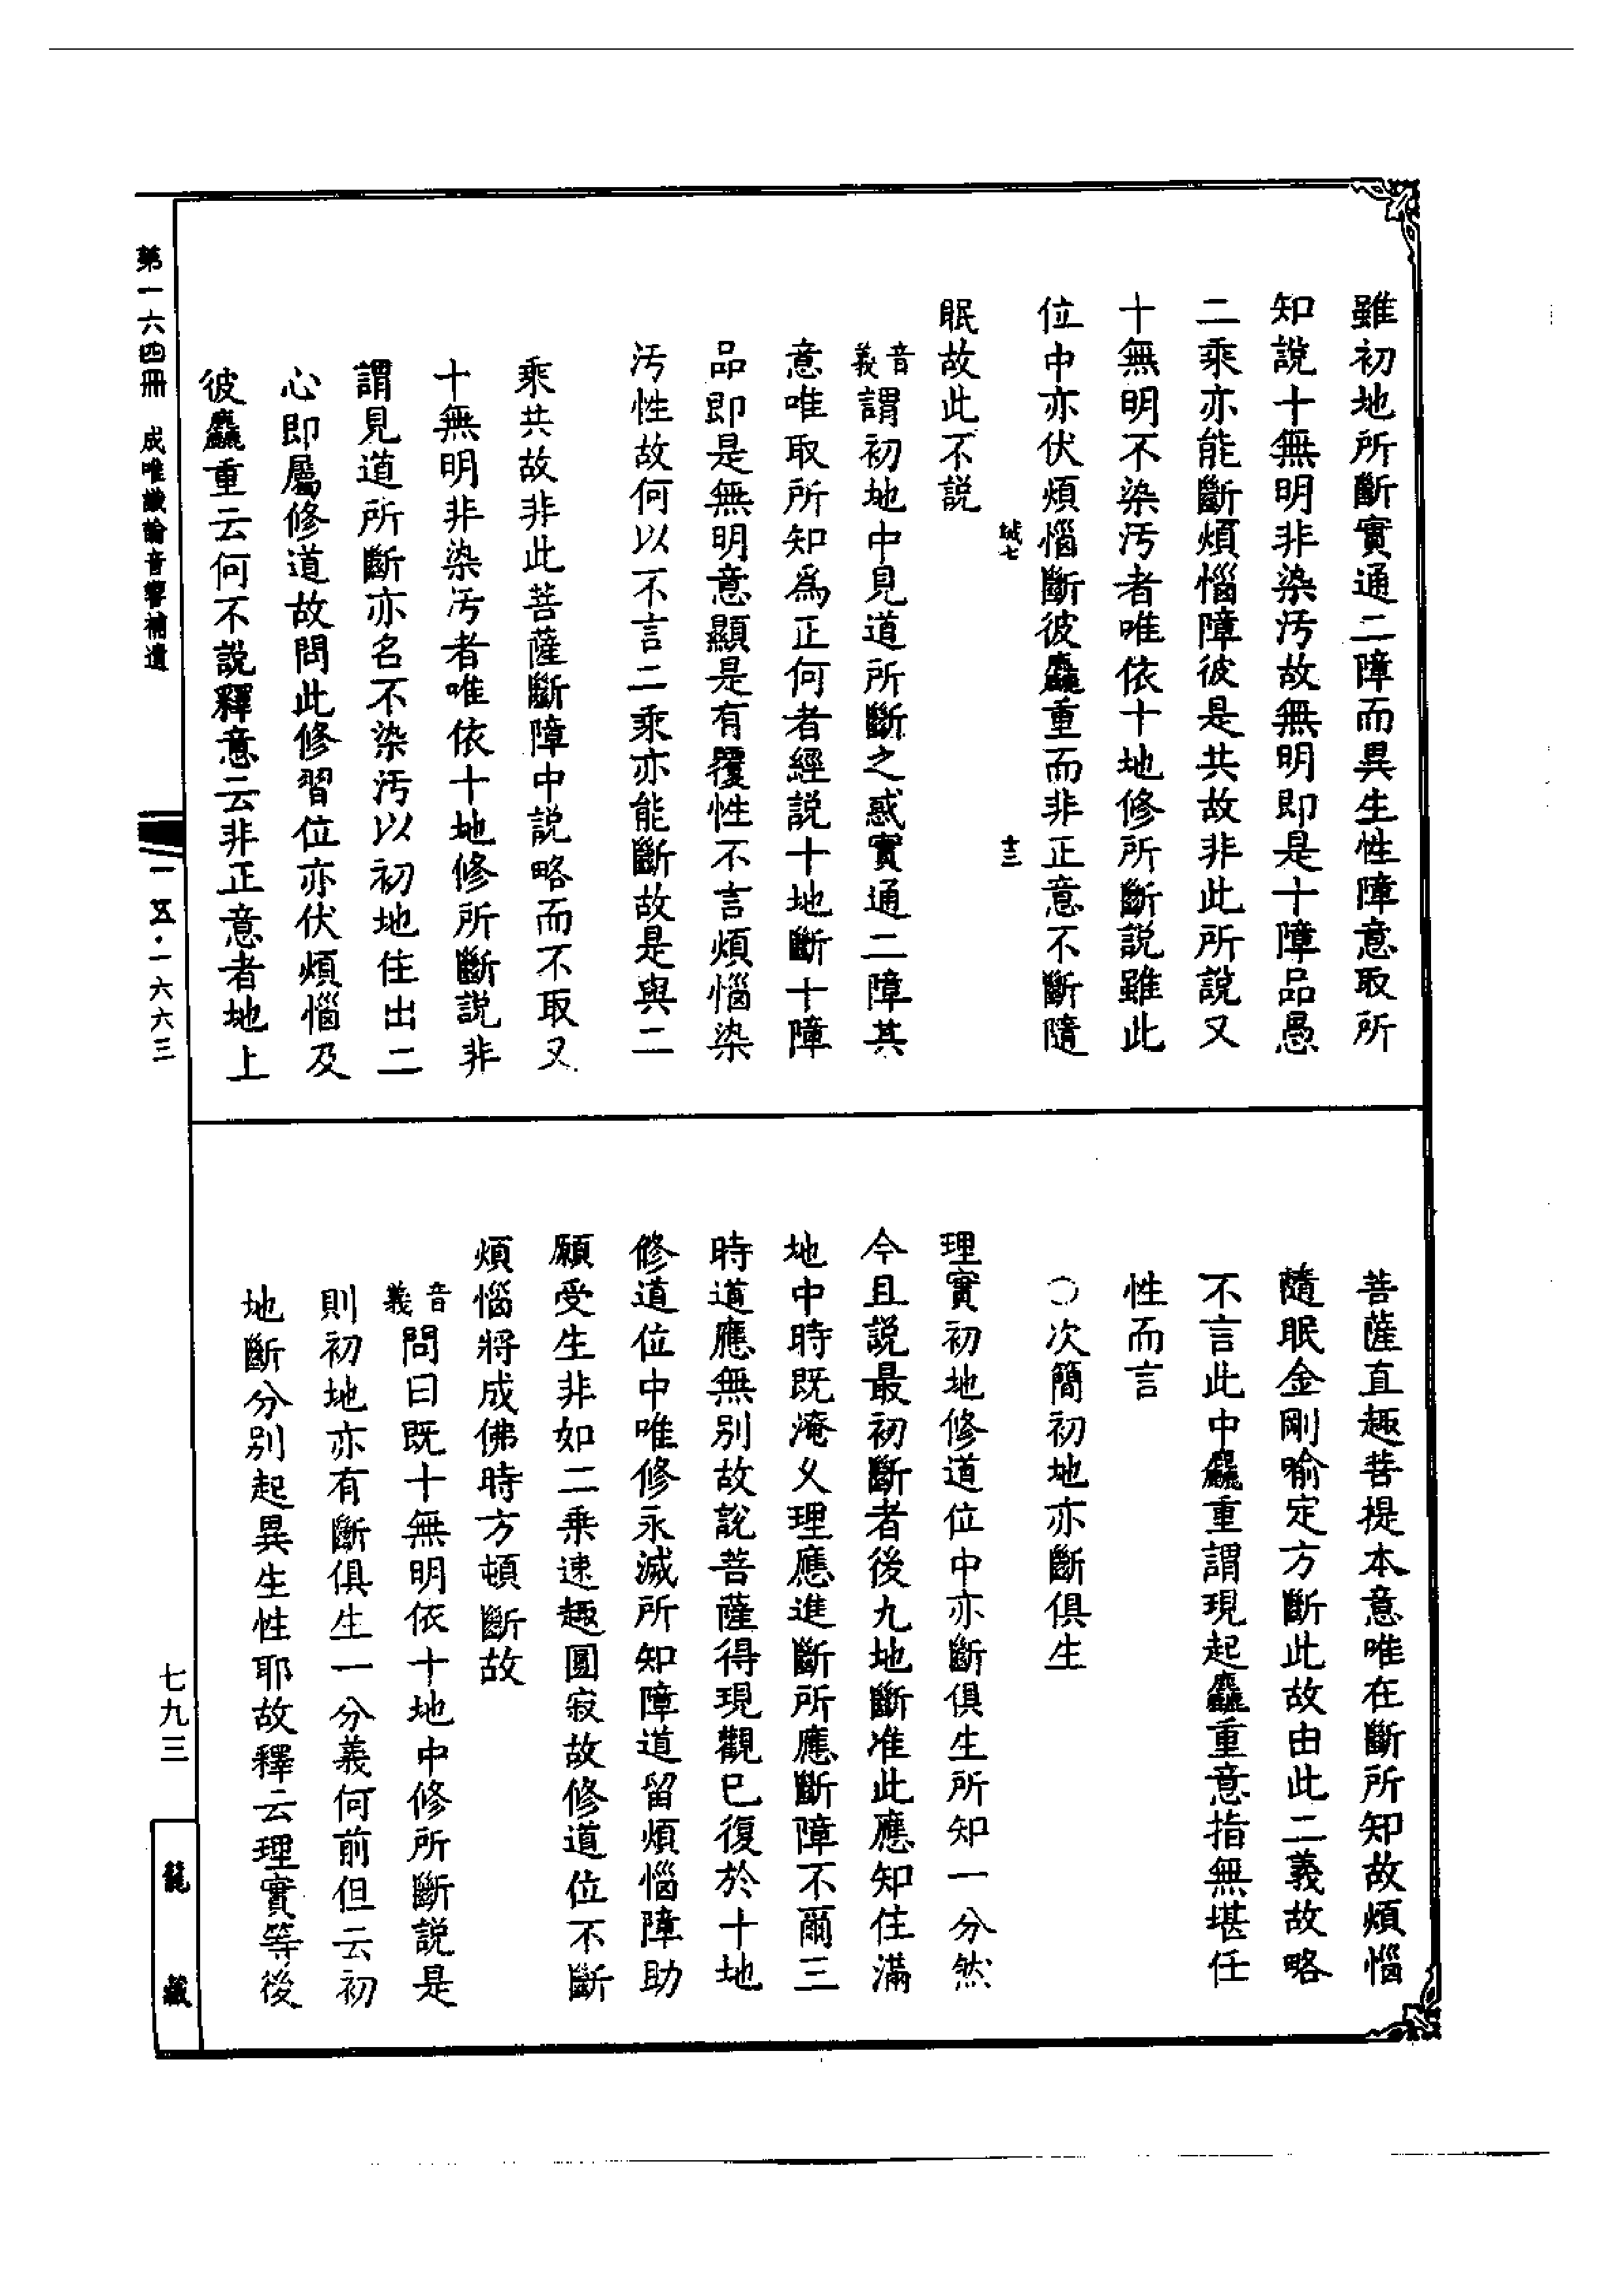 雖初地所斷實通二障而異生性障意取所
知說十無明非染汚故無明即是十障品愚
二乘亦能斷煩惱障彼是共故非此所說又
十無明不染汚者唯依十地修所斷説雖此
位中亦伏煩惱斷彼麤重而非正意不斷隨
眠故此不説
音義謂初地中見道所斷之惑實通二障其
意唯取所知爲正何者經説十地斷十障
品即是無明意顯是有覆性不言煩惱染
汚性故何以不言二乘亦能斷故是與二
乘共故非此菩薩斷障中説略而不取又
十無明非染汚者唯依十地修所斷説非
謂見道所斷亦名不染汚以初地住出二
心即屬修道故問此修習位亦伏煩惱及
彼麤重云何不説釋意云非正意者地上
菩薩直趣菩提本意唯在斷所知故煩惱
隨眠金剛喻定方斷此故由此二義故略
不言此中麤重謂現起麤重意指無堪任
性而言
○次簡初地亦斷俱生
理實初地修道位中亦斷俱生所知一分然
今且説最初斷者後九地斷准此應知住滿
地中時既淹久理應進斷所應斷障不爾三
時道應無別故説菩薩得現觀已復於十地
修道位中唯修永滅所知障道留煩惱障助
願受生非如二乘速趣圓寂故修道位不斷
煩惱將成佛時方頓斷故
音義問曰既十無明依十地中修所斷説是
則初地亦有斷俱生一分義何前但云初
地斷分別起異生性耶故釋云理實等後
第一六四冊 成唯識論音響補遺
一五·一六六三
七九三
龍藏